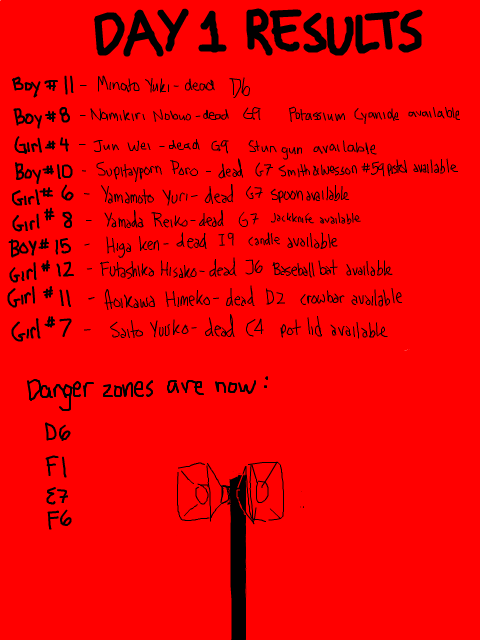 DAY 1 RESULTS
Boy # 11 - Minato Yuki - dead D6
Boy # 8 - Namikiri Nobuo - dead G9 Potassium Cyanide available
Girl # 4 - Jun Wei - dead G9 Stun gun available
Boy # 10 - Supitayporn Poro - dead G7 Smith & Wesson #59 pistol available
Girl # 6 - Yamamoto Yuri - dead G7 Spoon available
Girl # 8 - Yamada Reiko - dead G7 Jackknife available
Boy # 15 - Higa Ken - dead I9 candle available
Girl # 12 - Futashika Hisako - dead J6 Baseball bat available
Girl # 11 - Aoikawa Himeko - dead D2 crowbar available
Girl # 7 - Saito Yusko - dead C4 pot lid available
Danger zones are now:
D6
F1
E7
F6